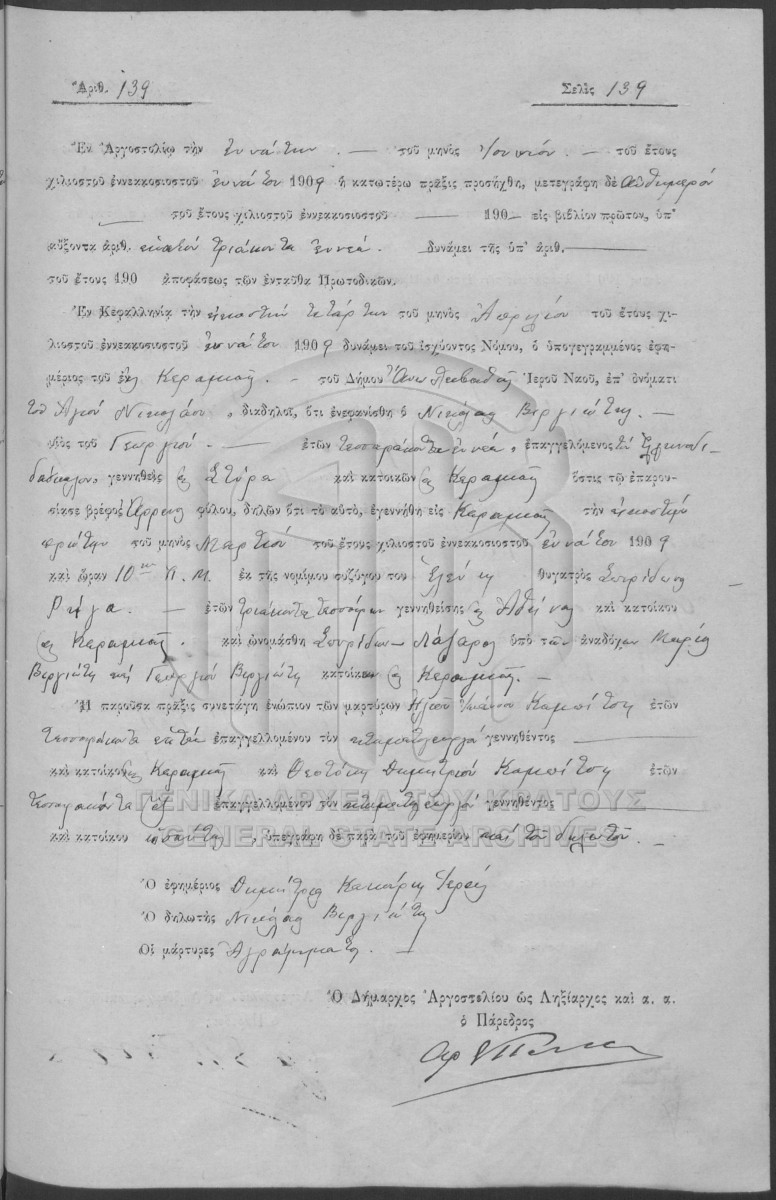 Ἀριθ. 139
Σελὶς 139
Ἐν Ἀργοστολίῳ τὴν ἐννάτην — τοῦ μηνὸς Ἰουνίου. — τοῦ ἔτους
χιλιοστοῦ ἐννεακοσιοστοῦ ἐννάτου 1909 ἡ κατωτέρω πρᾶξις προσήχθη, μετεγράφη δὲ αὐθημερόν
τοῦ ἔτους χιλιοστοῦ ἐννεακοσιοστοῦ — 190— εἰς βιβλίον πρῶτον, ὑπ'
αὔξοντα ἀριθ. ἑκατόν τριάκοντα ἐννέα. δυνάμει τῆς ὑπ' ἀριθ. —
τοῦ ἔτους 190 ἀποφάσεως τῶν ἐνταῦθα Πρωτοδικῶν.
Ἐν Κεφαλληνίᾳ τὴν εἰκοστήν τετάρτην τοῦ μηνὸς Ἀπριλίου τοῦ ἔτους χι-
λιοστοῦ ἐννεακοσιοστοῦ ἐννάτου 1909 δυνάμει τοῦ ἰσχύοντος Νόμου, ὁ ὑπογεγραμμένος ἐφη-
μέριος τοῦ ἐν Κεραμιαῖς. — τοῦ Δήμου Ἄνω Λειβαθοῦς Ἱεροῦ Ναοῦ, ἐπ' ὀνόματι
τοῦ Ἁγίου Νικολάου, διαδηλοῖ, ὅτι ἐνεφανίσθη ὁ Νικόλαος Βεργιώτης —
υἱὸς τοῦ Γεωργίου. — ἐτῶν τεσσαράκοντα ἐννέα, ἐπαγγελόμενος τὸν Ἑλληνοδι-
δάσκαλον γεννηθεὶς καὶ κατοικῶν Κεραμιαῖς ὅστις τῷ ἐπαρου-
σίασε βρέφος ἄρρεν φύλου, δηλῶν ὅτι τὸ αὐτὸ, ἐγεννήθη εἰς Κεραμιαῖς τὴν εἰκοστήν
πρώτην τοῦ μηνὸς Μαρτίου τοῦ ἔτους χιλιοστοῦ ἐννεακοσιοστοῦ ἐννάτου 1909
καὶ ὥραν 10ην Π. Μ. ἐκ τῆς νομίμου συζύγου του Ἑλένης θυγατρὸς Σπυρίδωνος —
Ρήγα. — ἐτῶν τριάκοντα τεσσάρων γεννηθείσης Ἀθήνας καὶ κατοίκου
Κεραμιαῖς. καὶ ὠνομάσθη Σπυρίδων – Λάζαρος ὑπὸ τῶν ἀναδόχων Μαρία
Βεργιώτη καὶ Γεωργίου Βεργιώτη κατοίκων Κεραμιαῖς. —
Ἡ παροῦσα πρᾶξις συνετάγη ἐνώπιον τῶν μαρτύρων Καμπίτση ἐτῶν
τεσσαράκοντα ἑπτά ἐπαγγελλομένου τὸν κτηματογεωργόν γεννηθέντος —
καὶ κατοίκου Κεραμιαῖς καὶ Θεοτόκη Δημητρίου Καμπίτση ἐτῶν
τεσσαράκοντα ἕξ ἐπαγγελλομένου τὸν κτηματογεωργόν γεννηθέντος —
καὶ κατοίκου ὡσαύτως, ὑπεγράφη δὲ παρὰ τοῦ ἐφημερίου καὶ τοῦ δηλωτοῦ. —
Ὁ ἐφημέριος Δημήτριος Ἱερεύς
Ὁ δηλωτὴς Νικόλαος Βεργιώτης
Οἱ μάρτυρες Ἀγράμματοι. —
Ὁ Δήμαρχος Ἀργοστολίου ὡς Ληξίαρχος καὶ α. α.
ὁ Πάρεδρος
ΓΕΝΙΚΑ ΑΡΧΕΙΑ ΤΟΥ ΚΡΑΤΟΥΣ
GENERAL STATE ARCHIVES